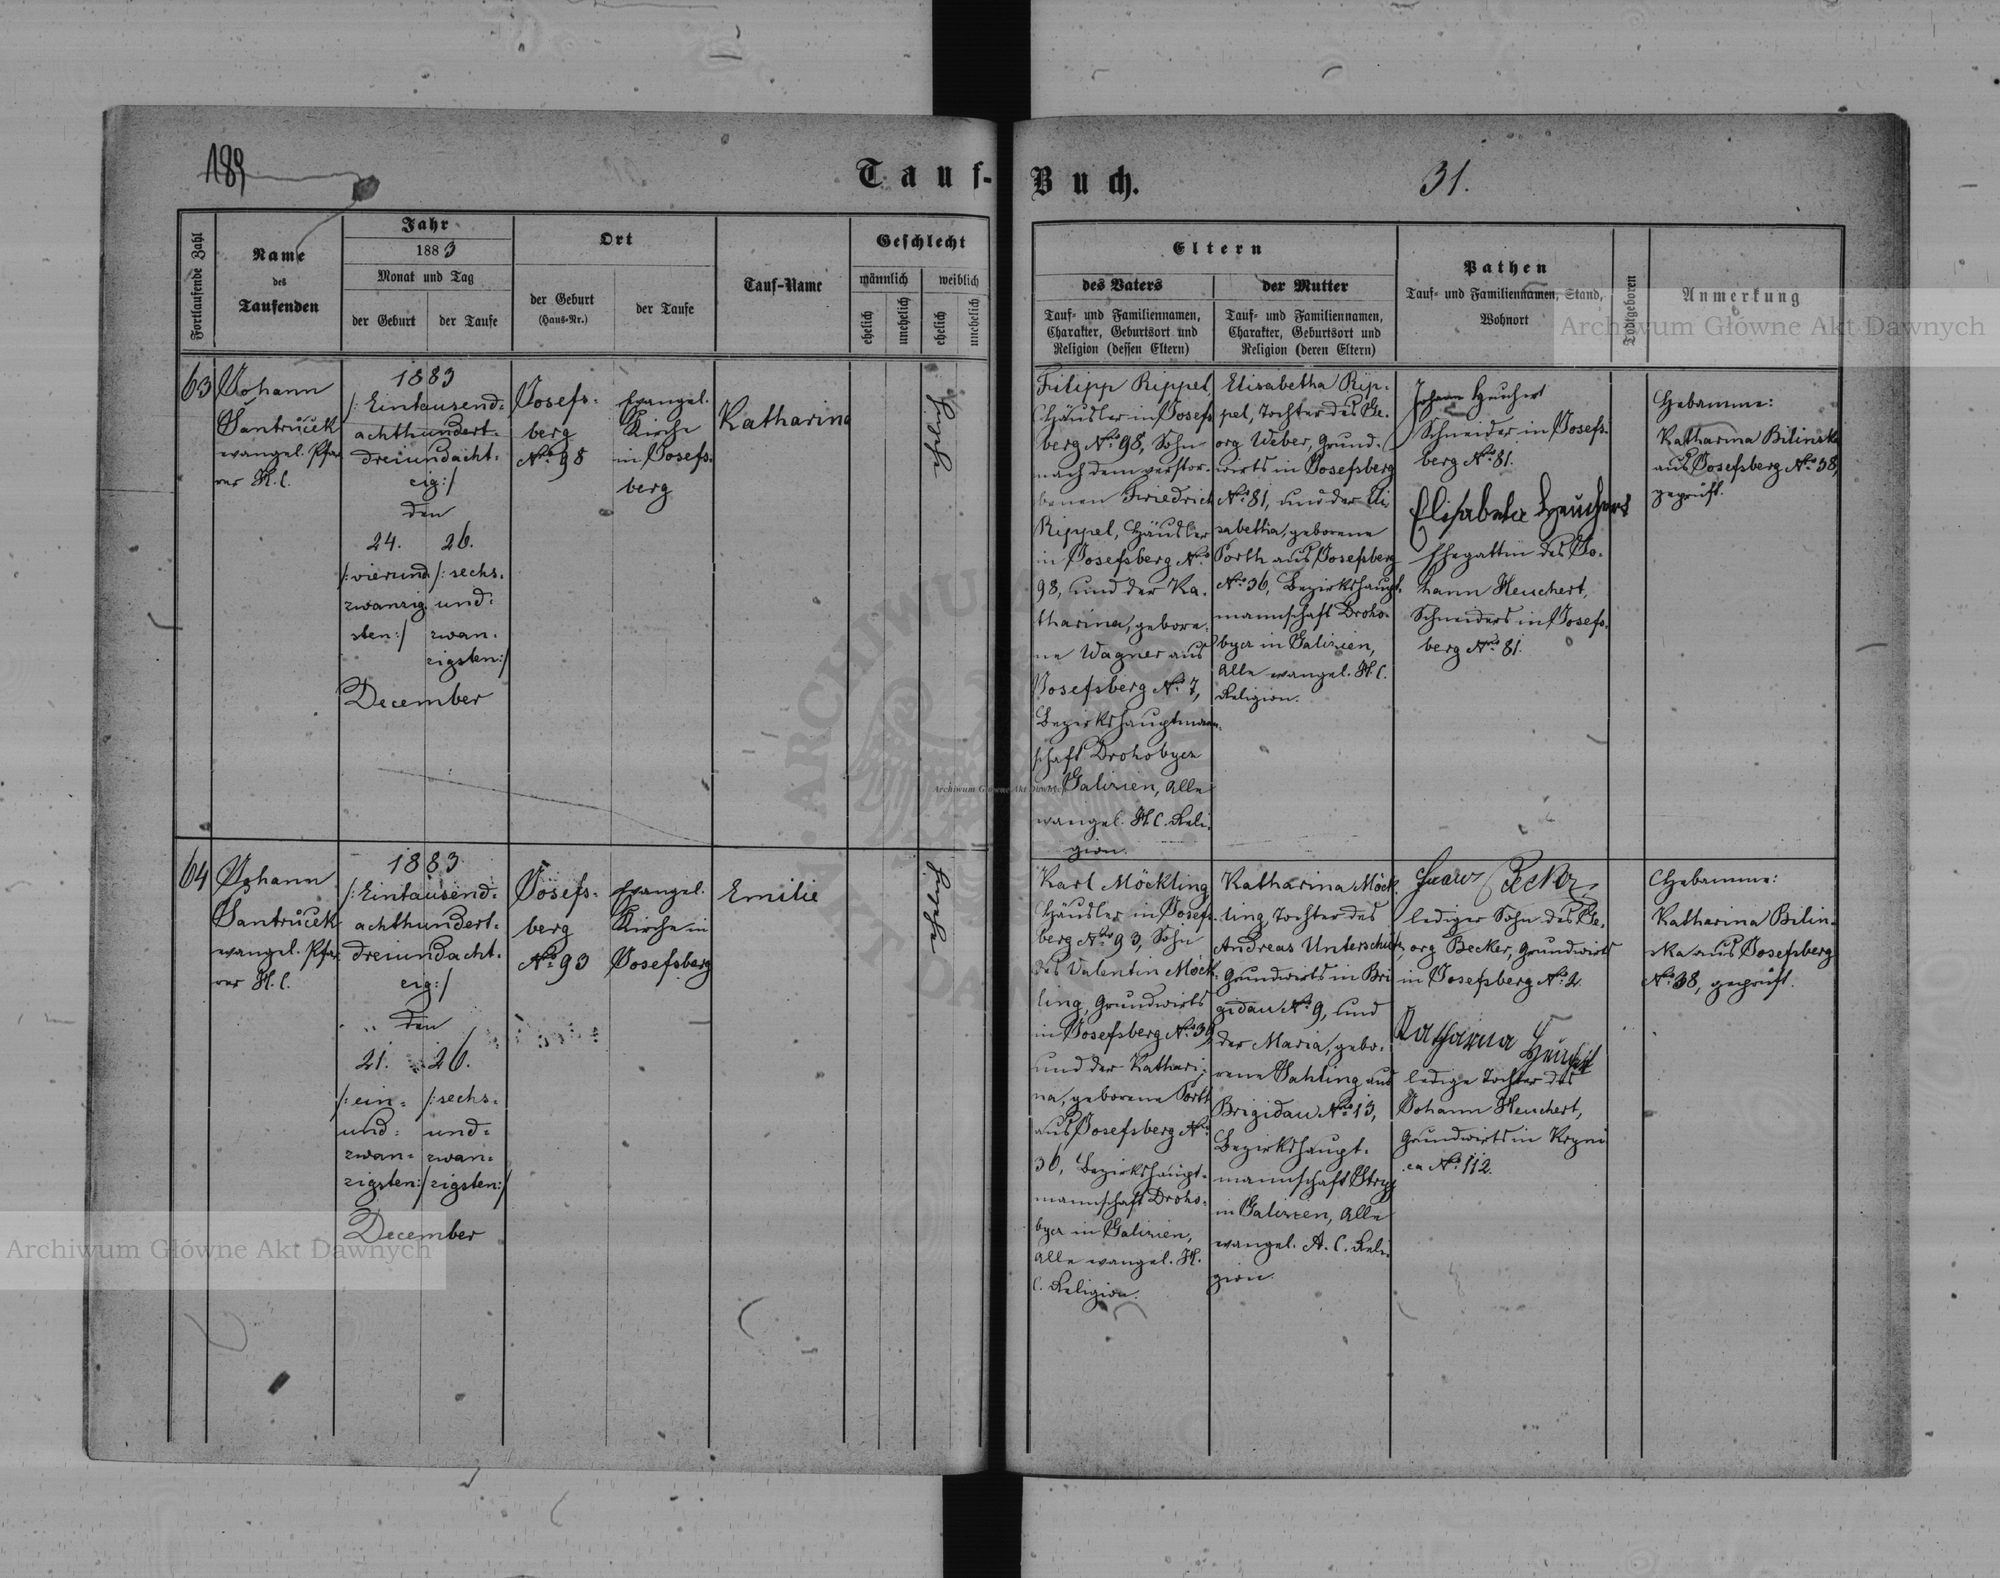 189
Tauf-Buch.
31.
Fortlaufende Zahl
Name
des
Taufenden
Jahr
1883
Monat und Tag
der Geburt
der Taufe
Ort
der Geburt
(Haus-Nr.)
der Taufe
Tauf-Name
Geschlecht
männlich
weiblich
ehelich
unehelich
ehelich
unehelich
Eltern
des Vaters
Tauf- und Familiennamen,
Charakter, Geburtsort und
Religion (dessen Eltern)
der Mutter
Tauf- und Familiennamen,
Charakter, Geburtsort und
Religion (deren Eltern)
Pathen
Tauf- und Familiennamen, Stand,
Wohnort
Todtgeboren
Anmerkung
63
Johann
Santrůček
evangel. Pfar-
rer H. C.
1883
/: Eintausend-
achthundert-
dreiundacht-
zig :/
den
24.
/: vierund
zwanzig
sten :/
26.
/: sechs-
und-
zwan-
zigsten :/
December
Josefs-
berg
No 98
Evangel.
Kirche
in Josefs-
berg
Katharina
Filipp Rippel
Häusler in Josefs-
berg No 98, Sohn
nach dem verstor-
benen Friedrich
Rippel, Häusler
in Josefsberg No
98, und der Ka-
tharina, gebore-
ne Wagner aus
Josefsberg No 7,
Bezirkshauptmann-
schaft Drohobycz
Galizien, Alle
evangel. H. C. Reli-
gion.
Elisabetha Rip-
pel, Tochter des Ge-
org Weber, Grund-
wirts in Josefsberg
No 81, und der Eli
sabetha, geborene
Porth aus Josefsberg
No 36, Bezirkshaupt-
mannschaft Droho-
bycz in Galizien,
Alle evangel. H. C.
Religion.
Johann Heuchert
Schneider in Josefs-
berg No 81.
Elisabeta Heuchert
Ehegattin des Jo-
hann Heuchert,
Schneiders in Josefs-
berg No 81.
Hebamme:
Katharina Bilinska
aus Josefsberg No 38,
geprüft.
64
Johann
Santrůček
evangel. Pfar-
rer H. C.
1883
/: Eintausend-
achthundert-
dreiundacht-
zig :/
den
21.
/: ein-
und-
zwan-
zigsten :/
26.
/: sechs-
und-
zwan-
zigsten :/
December
Josefs-
berg
No 93
Evangel.
Kirche in
Josefsberg
Emilie
Karl Möckling
Häusler in Josefs-
berg No 93, Sohn
des Valentin Möck-
ling, Grundwirts
in Josefsberg No 39
und der Kathari-
na, geborene Porth
aus Josefsberg No
36, Bezirkshaupt-
mannschaft Droho-
bycz in Galizien,
Alle evangel. H.
C. Religion.
Katharina Möck-
ling, Tochter des
Andreas Unterschütz,
Grundwirts in Bri
gidau No 9, und
der Maria, gebo-
rene Jahling aus
Brigidau No 13,
Bezirkshaupt-
mannschaft Stryj
in Galizien, Alle
evangel. A. C. Reli-
gion.
Becker
lediger Sohn des Ge-
org Becker, Grundwirts
in Josefsberg No 2.
Katharina Heuchert
ledige Tochter des
Johann Heuchert,
Grundwirts in Kryni
ca No 112.
Hebamme:
Katharina Bilin-
ska aus Josefsberg
No 38, geprüft.
Archiwum Główne Akt Dawnych
Archiwum Główne Akt Dawnych
Archiwum Główne Akt Dawnych